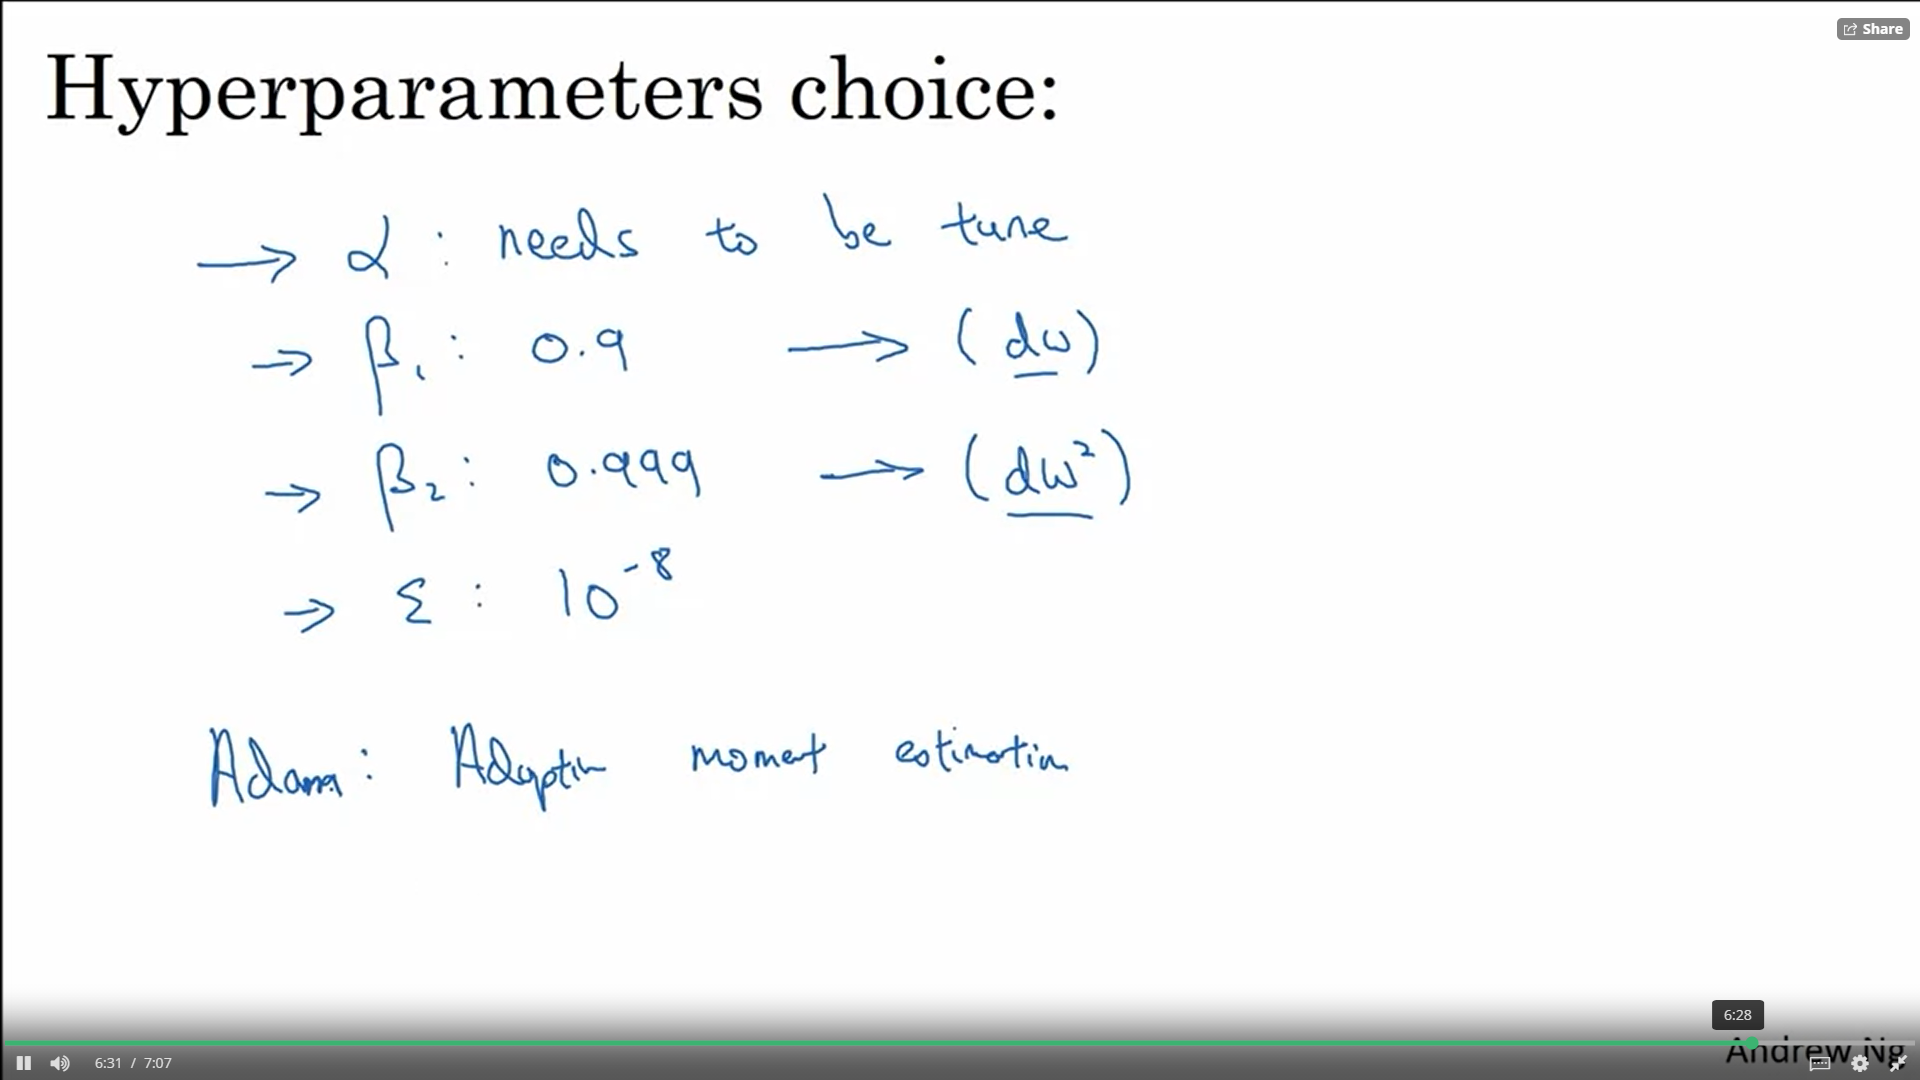 Share
Hyperparameters choice:
→ α : needs to be tune
→ β₁ : 0.9 → (dw)
→ β₂ : 0.999 → (dw²)
→ ε : 10⁻⁸
Adam: Adaptive moment estimation
6:28
6:31 / 7:07
Andrew Ng